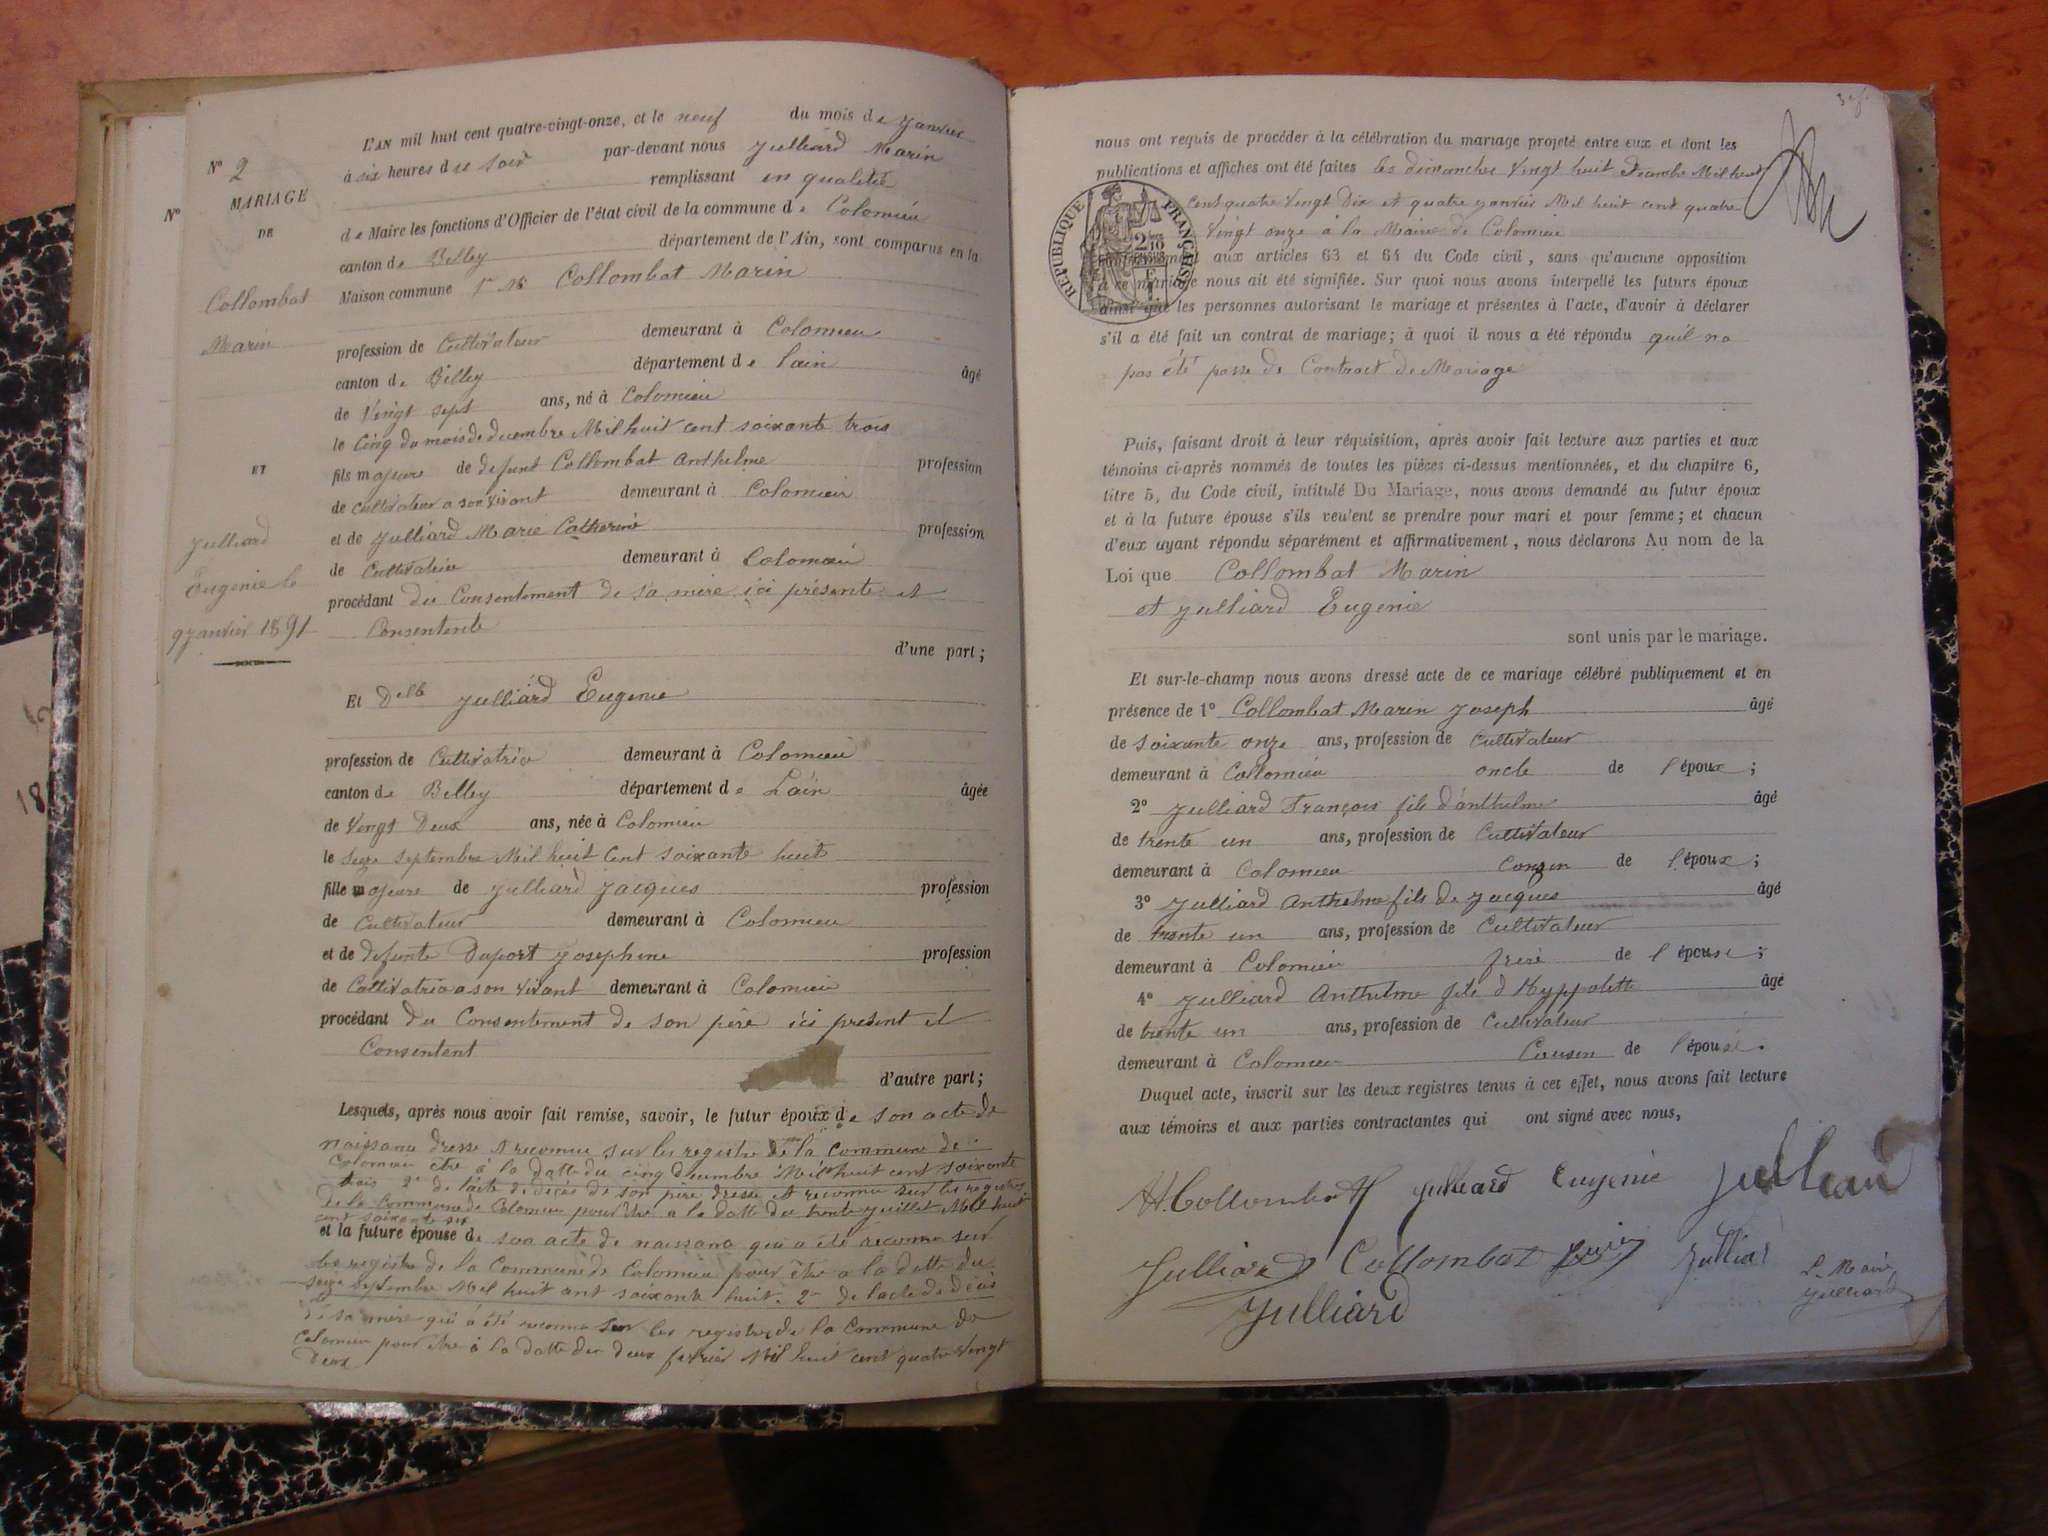 L'AN mil huit cent quatre-vingt-onze, et le neuf du mois de janvier
à six heures du soir par-devant nous Julliard Marin
remplissant en qualité
de Maire les fonctions d'Officier de l'état civil de la commune de Colomieu
canton de Belley département de l'Ain, sont comparus en la
Maison commune 1° Mr Collombat Marin
profession de Cultivateur demeurant à Colomieu
canton de Belley département de lain âgé
de Vingt sept ans, né à Colomieu
le Cinq du mois de decembre Mil huit cent soixante trois
fils majeure de defunt Collombat Anthelme profession
de cultivateur a son vivant demeurant à Colomieu
et de Julliard Marie Catherine profession
de Cultivatrice demeurant à Colomieu
procédant du Consentement de sa mère ici présente et
Consentente
d'une part;
Et Delle Julliard Eugenie
profession de Cultivatrice demeurant à Colomieu
canton de Belley département de L'ain âgée
de Vingt Deux ans, née à Colomieu
le Seize septembre Mil huit Cent soixante huit
fille majeure de Julliard Jacques profession
de Cultivateur demeurant à Colomieu
et de defunte Duport Josephine profession
de Cultivatrice a son vivant demeurant à Colomieu
procédant du Consentement de son père ici present et
Consentent
d'autre part;
Lesquels, après nous avoir fait remise, savoir, le futur époux de son acte de
naissance dressé et reconnu sur les registre de la Commune de
Colomieu être à la datte du cinq decembre Mil huit cent soixante
trois 2° de l'acte de décés de son père dressé et reconnu sur les registres
de la Commune de Colomieu pour être a la datte du trente juillet Mil huit
cent soixante six
et la future épouse de son acte de naissance qui a été reconnu sur
les registre de la Commune de Colomieu pour être a la datte du
seize septembre Mil huit cent soixante huit. 2° de lacte de décés
de sa mère qui à été reconnu sur les registres de la Commune de
Colomieu pour être à la datte du deux fevrier Mil huit cent quatre vingt
Deux
N° 2
N°
MARIAGE
DE
Collombat
Marin
ET
Julliard
Eugenie le
9 janvier 1891
nous ont requis de procéder à la célébration du mariage projeté entre eux et dont les
publications et affiches ont été faites les dimanches Vingt huit Decembre Mil huit
Cent quatre Vingt Dix et quatre janvier Mil huit cent quatre
Vingt onze à la Mairie de Colomieu
RÉPUBLIQUE FRANÇAISE
aux articles 63 et 64 du Code civil, sans qu'aucune opposition
à ce mariage nous ait été signifiée. Sur quoi nous avons interpellé les futurs époux
ainsi que les personnes autorisant le mariage et présentes à l'acte, d'avoir à déclarer
s'il a été fait un contrat de mariage; à quoi il nous a été répondu qu'il na
pas été passe de Contract de Mariage
Puis, faisant droit à leur réquisition, après avoir fait lecture aux parties et aux
témoins ci-après nommés de toutes les pièces ci-dessus mentionnées, et du chapitre 6,
titre 5, du Code civil, intitulé Du Mariage, nous avons demandé au futur époux
et à la future épouse s'ils veulent se prendre pour mari et pour femme; et chacun
d'eux ayant répondu séparément et affirmativement, nous déclarons Au nom de la
Loi que Collombat Marin
et Julliard Eugenie
sont unis par le mariage.
Et sur-le-champ nous avons dressé acte de ce mariage célébré publiquement et en
présence de 1° Collombat Marin Joseph âgé
de soixante onze ans, profession de Cultivateur
demeurant à Colomieu oncle de l'époux;
2° Julliard François fils d'anthelme âgé
de trente un ans, profession de Cultivateur
demeurant à Colomieu Consin de l'époux;
3° Julliard Anthelme fils de Jacques âgé
de trente un ans, profession de Cultivateur
demeurant à Colomieu frère de l'épouse;
4° Julliard Anthelme fils d'Hyppolitte âgé
de trente un ans, profession de Cultivateur
demeurant à Colomieu Cousin de l'épouse.
Duquel acte, inscrit sur les deux registres tenus à cet effet, nous avons fait lecture
aux témoins et aux parties contractantes qui ont signé avec nous,
Collombat Julliard Eugenie Julliard
Julliard Collombat Julliard
Le Maire
Julliard
Julliard